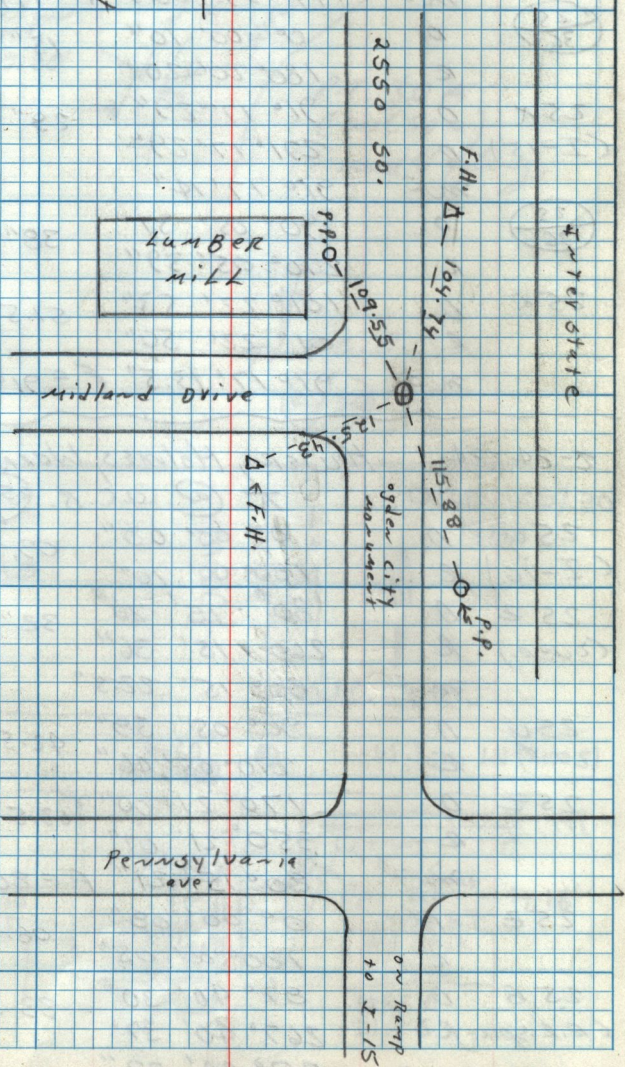 2550 SO.
F.H.
104.74
Interstate
P.P.
109.55
LUMBER
MILL
Midland Drive
F.H.
115.88
P.P.
ogden city
monument
Pennsylvania
ave.
on Ramp
to I-15